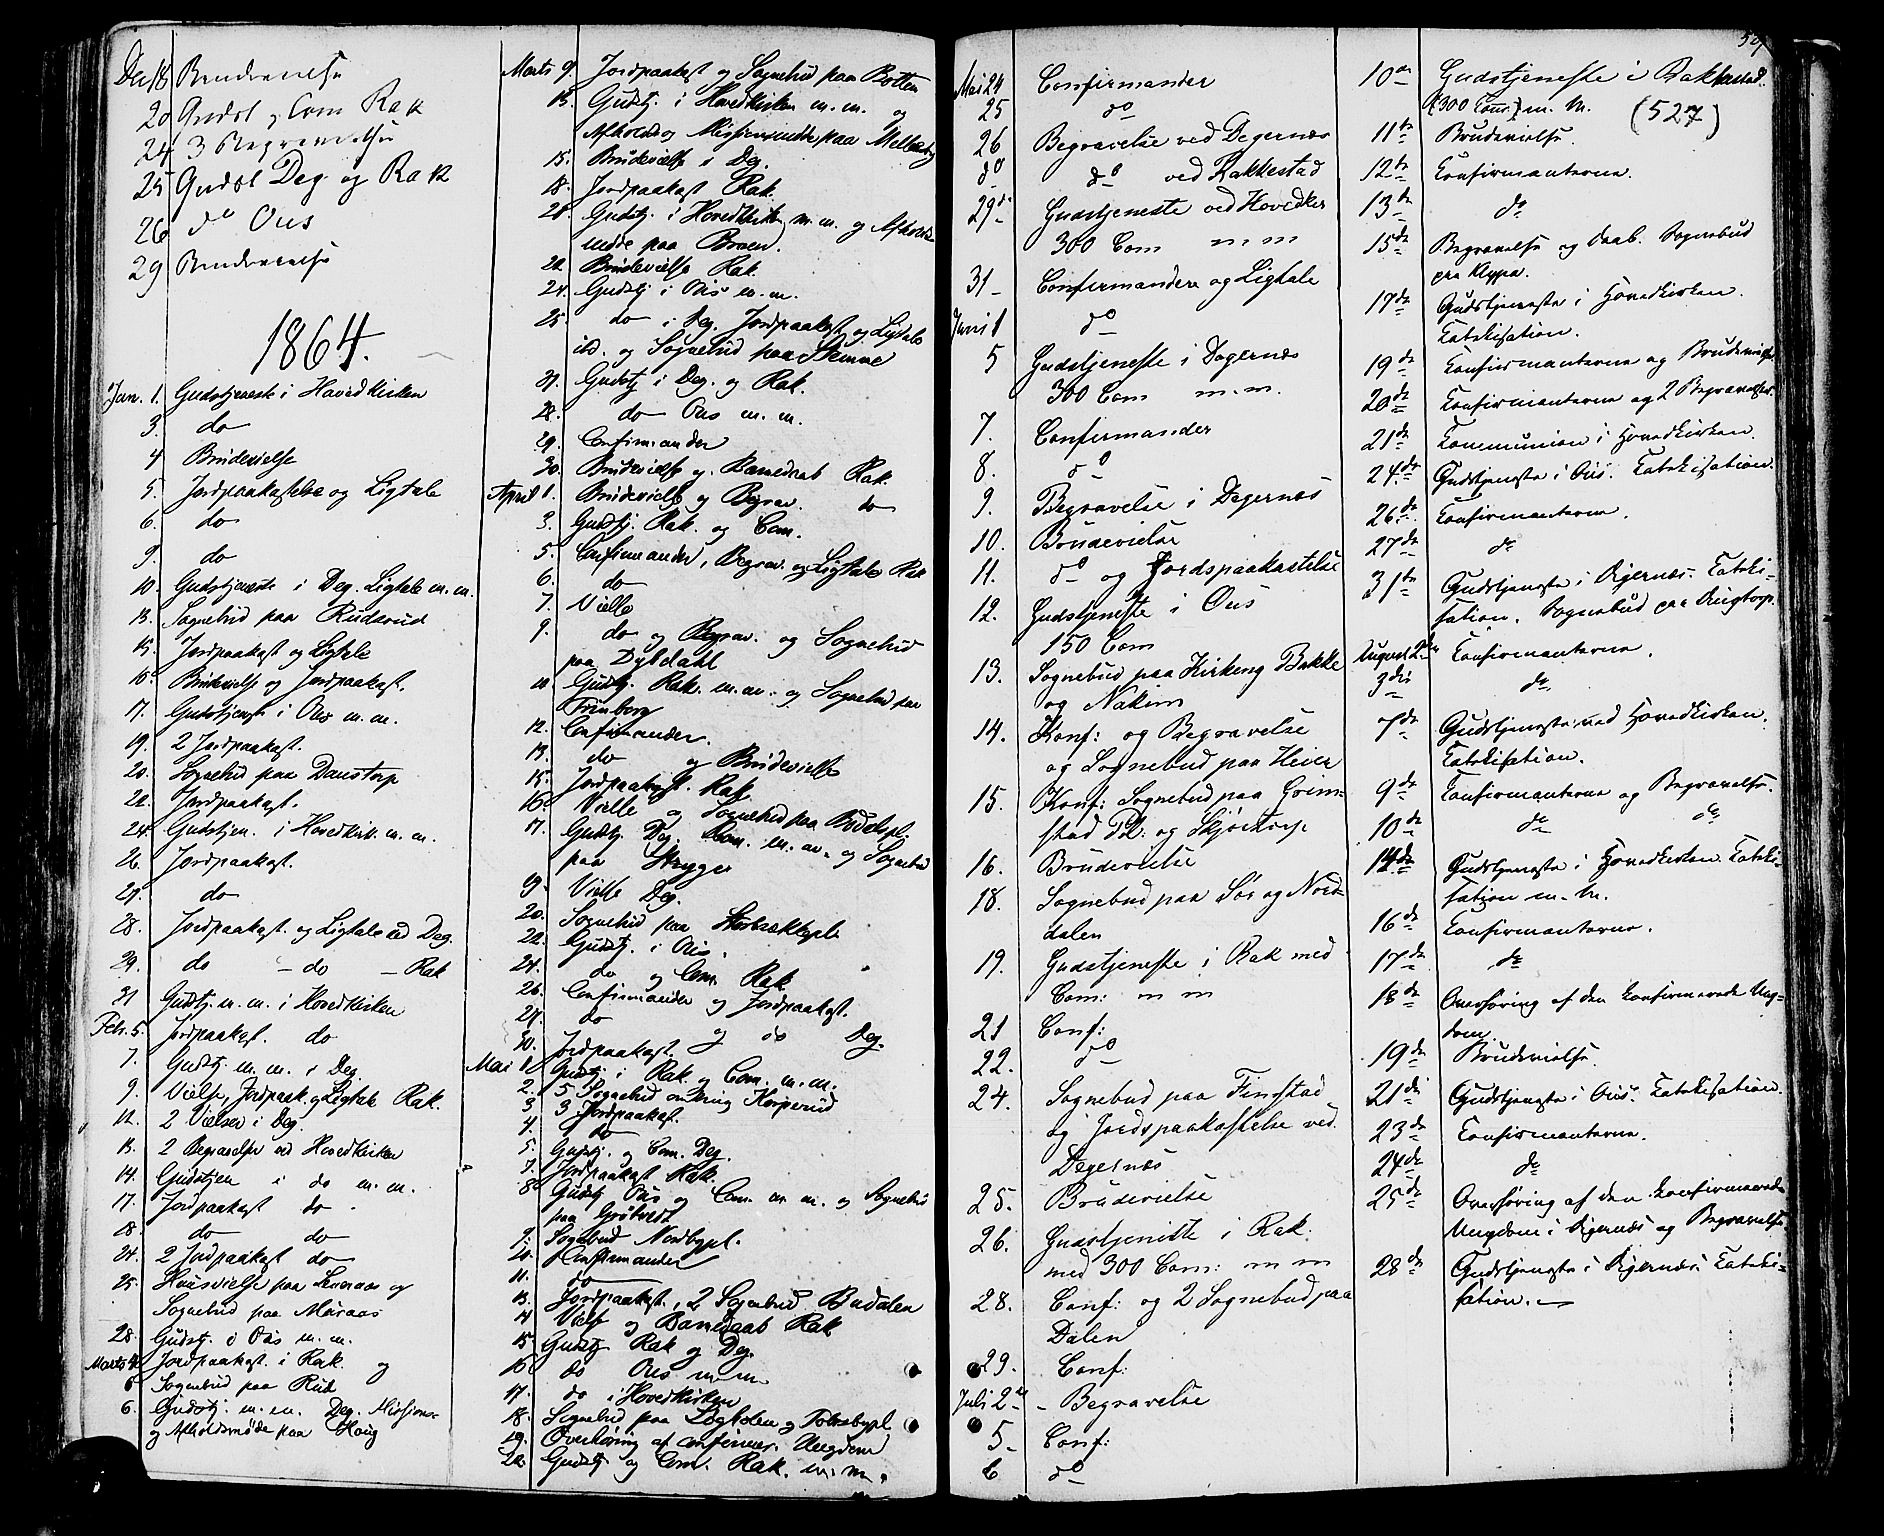 Dec 18 Brudevielse
20 Gudst og Com Rak
24 3 Begravelse
25 Gudst Deg og Rak
26 do Ous
29 Brudevielse
1864.
Jan. 1. Gudstjeneste i Hovedkirken
3. do
4 Brudevielse
5. Jordpaakastelse og Ligtale
6. do
9. do
10. Gudstjeneste i Deg. Ligtale m. m.
13. Sognebud paa Ruderud
15. Jordpaakast og Ligtale
16. Brudevielse og Jordpaakast.
17. Gudstjenste i Ous m. m.
19. 2 Jordpaakast.
20. Sognebud paa Danstorp
22. Jordpaakast.
24. Gudstjen. i Hovedkirk. m. m.
26. Jordpaakast.
27. do
28. Jordpaakast. og Ligtale ved Deg.
29. do – do – Rak
31 Gudstj. m. m. i Hovedkirken
Febr. 5. Jordpaakast. do
7. Gudstj. m. m. i Deg.
9. Vielse, Jordpaak. og Ligtale Rak.
12. 2 Vielser i Deg.
13. 2 Begravelser ved Hovedkirken
14. Gudstjen i do m. m.
17. Jordpaakast do.
18. do do
24. 2 Jordpaakast do
25. Huusvielse paa og
Sognebud paa
28. Gudstj. i Ous m. m.
Marts 4. Jordpaakast. i Rak. og
5 Sognebud paa Rud
6. Gudstj. m. m. Deg. Missions-
og Afholdsmøde paa Haug
Marts 9. Jordpaakast og Sognebud paa Botten
13. Gudstj. i Hovedkirken m. m. og
Afholds og Missionsmøde paa Melleby
15. Brudevielse i Deg.
18. Jordpaakast Rak.
20. Gudstj. i Hovedkirken m. m. og Afholds
møde paa Braen.
22. Brudevielse Rak.
24. Gudstj i Ous m. m.
25. do i Deg. Jordpaakast og Ligtale
ib. og Sognebud paa
27. Gudstj i Deg. og Rak.
28. do Ous m. m.
29. Confirmander
30. Brudevielse og Barnedaab Rak.
April 1. Brudevielse og Begrav. do
3. Gudstj. Rak. og Com.
5. Confirmander, Begrav. og Ligtale Rak
6. do
7. Vielse
9. do og Begrav. og Sognebud
paa Dybdahl
10. Gudstj. Rak. m. m. og Sognebud paa
12. Confirmander.
13. do og Brudevielse
15. Jordpaakast. Rak
16. Vielse og Sognebud paa
17. Gudstj. Deg. Com. m. m. og Sognebud
paa
19. Vielse Deg.
20. Sognebud paa
22. Gudstj. i Ous.
24. do og Com. Rak
26. Confirmander og Jordpaakast.
27. do
30. Jordpaakast. og do Deg.
Mai 1 Gudstj i Rak. og Com. m. m.
2. 5 Sognebud omkring Korperud
3 3 Jordpaakast.
4. do
5. Gudstj. og Com. Deg.
7. Jordpaakast Rak.
8. Gudstj Ous og Com. m. m. og Sognebud
paa Grøtvedt
9. Sognebud Nordbypl.
10. Confirmander
11. do
13. Jordpaakast., 2 Sognebud Budalen
14 Vielse og Barnedaab Rak
15 Gudstj Rak og Deg.
16 do Ous m. m.
17. do i Hovedkirken
18. Sognebud paa og
19. Overhøring af Confirmer. Ungdom
22. Gudstj og Com. Rak. m. m.
Mai 24 Confirmander
25 do
26 Begravelse ved Degernæs
do do ved Rakkestad
29de Gudstjeneste ved Hovedker
300 Com m m
31 – Confirmander og Ligtale
Juni 1 do
5 Gudstjeneste i Degernæs
300 Com m. m.
7. Confirmander
8. do
9. Begravelse i Degernæs
10. Brudevielse
11. do og Jordspaakastelse
12. Gudstjeneste i Ous
150 Com
13. Sognebud paa Kirkeng Bakke
og Nakim
14. Konf: og Begravelse
og Sognebud paa Heier
15. Konf: Sognebud paa Grim-
stad Pl: og Skjørtorp
16. Brudevielse
18. Sognebud paa Sør og Nord-
dalen
19. Gudstjeneste i Rak med
Com: m m
21 Conf:
22. do
24. Sognebud paa Finstad
og Jordspaakastelse ved
Degernæs
25. Brudevielse
26. Gudstjeneste i Rak.
med 300 Com: m m
28. Conf: og 2 Sognebud paa
Dalen
29. Conf:
Juli 2de – Begravelse
5 – Conf:
6 do
527
10de Gudstjeneste i Rakkestad.
(300 Com.) m. m. (527)
11te Brudevielse.
12te Konfirmanterne.
13de do
15de Begravelse og Daab. Sognebud
paa Klypa.
17de Gudstjeneste i Hovedkirken.
Katekisation.
19de Konfirmanterne og Brudevielse
20de Konfirmanterne og 2 Begravelser.
21de Kommunion i Hovedkirken.
24de Gudstjeneste i Ous. Katekisation.
26de Konfirmanterne.
27de do
31te Gudstjeneste i Degernæs. Kateki-
sation. Sognebud paa
August 2den Konfirmanterne.
3die do
7de Gudstjeneste ved Hovedkirken.
Katekisation.
9de Konfirmanterne og Begravelse.
10de do do
14de Gudstjeneste i Hovedkirken. Kateki-
sation m. m.
16de Konfirmanterne.
17de do
18de Overhøring af den konfirmerede Ung-
dom.
19de Brudevielse.
21de Gudstjeneste i Ous. Katekisation.
23de Konfirmanterne.
24de do
25de Overhøring af den konfirmerede
Ungdom i Degernæs og Begravelse
28de Gudstjeneste i Degernæs. Kateki-
sation. —